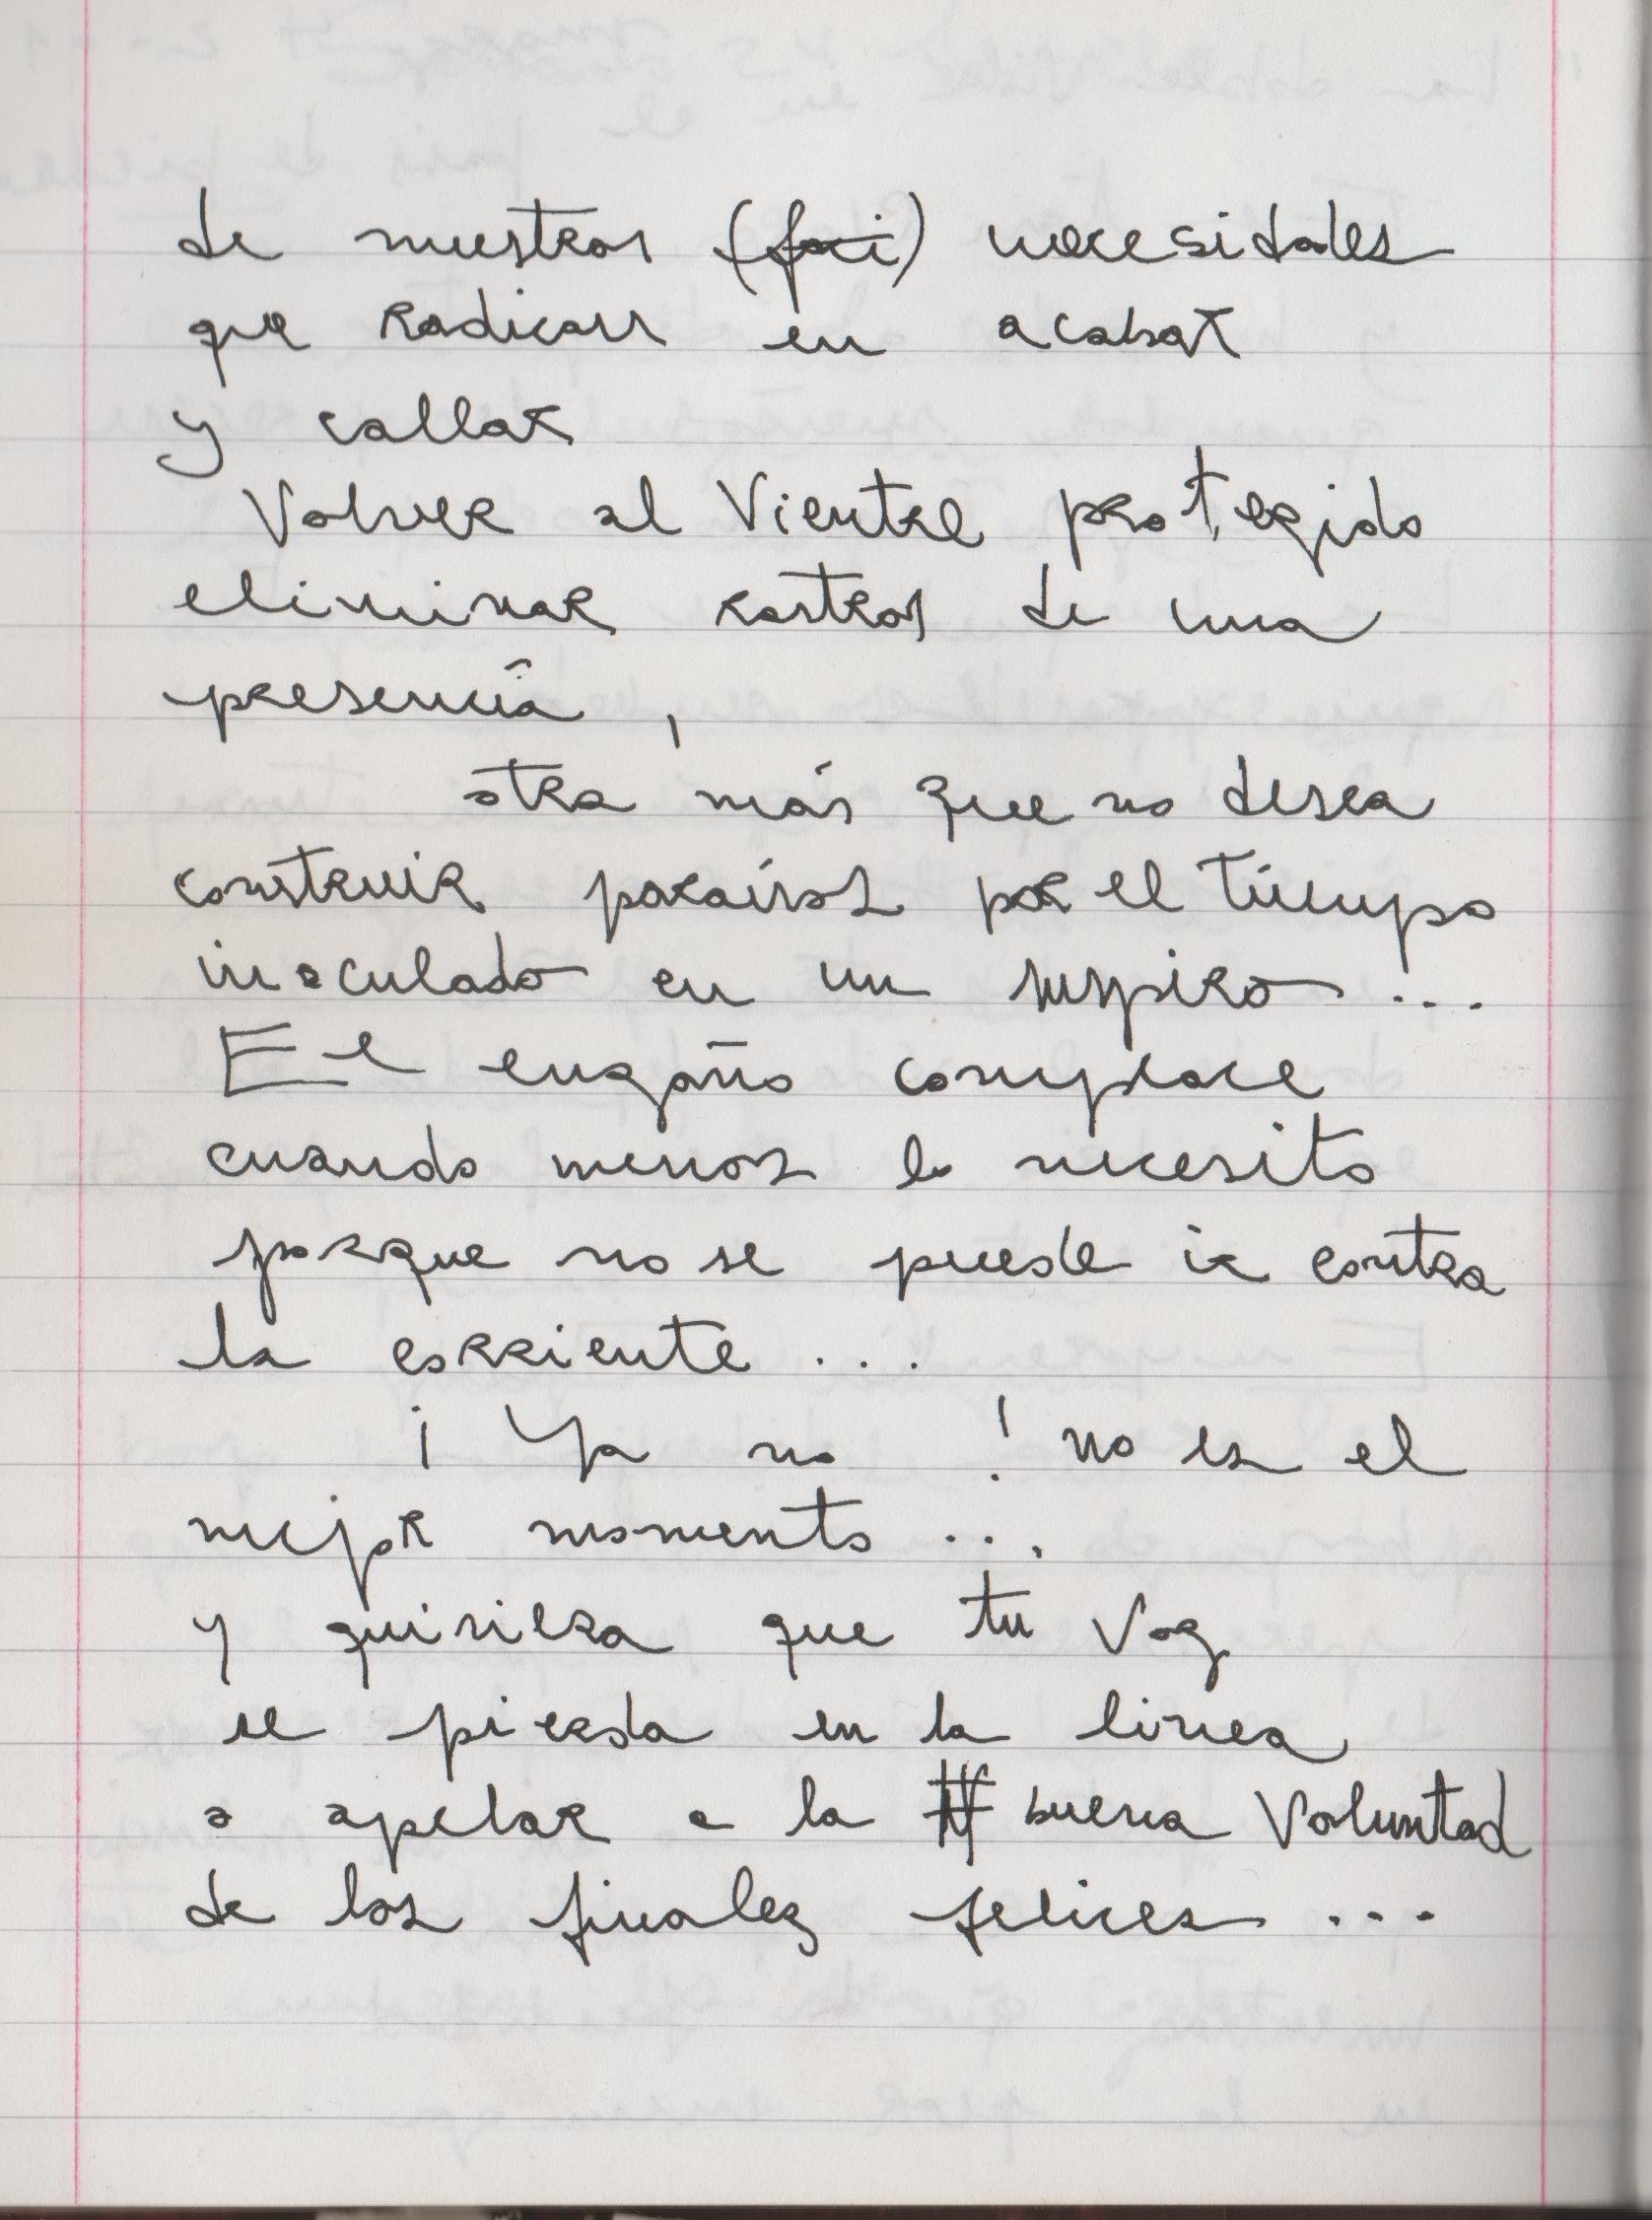 de nuestras (faci) necesidades
que radican en acabar
y callar
Volver al Vientre protegido
eliminar rastros de una
presencia,
otra más que no desea
construir paraísos por el tiempo
inoculado en un suspiro...
El engaño complace
cuando menos lo necesito
porque no se puede ir contra
la corriente...
¡Ya no! no es el
mejor momento...
y quisiera que tu voz
se pierda en la linea
a apelar a la buena Voluntad
de los finales felices...